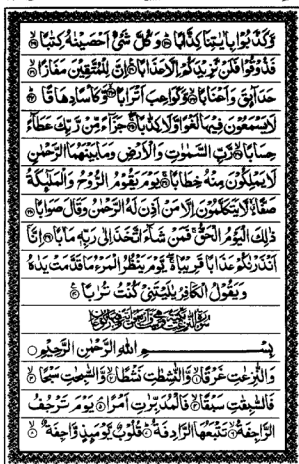 وَّكَذَّبُوْا بِاٰيٰتِنَا كِذَّابًا ﴿۲۸﴾ وَكُلَّ شَیْءٍ اَحْصَيْنٰهُ كِتٰبًا ﴿۲۹﴾
فَذُوْقُوْا فَلَنْ نَّزِيْدَكُمْ اِلَّا عَذَابًا ﴿۳۰﴾ اِنَّ لِلْمُتَّقِيْنَ مَفَازًا ﴿۳۱﴾
حَدَآئِقَ وَاَعْنَابًا ﴿۳۲﴾ وَّكَوَاعِبَ اَتْرَابًا ﴿۳۳﴾ وَّكَاْسًا دِهَاقًا ﴿۳۴﴾
لَا يَسْمَعُوْنَ فِيْهَا لَغْوًا وَّلَا كِذّٰبًا ﴿۳۵﴾ جَزَآءً مِّنْ رَّبِّكَ عَطَآءً
حِسَابًا ﴿۳۶﴾ رَّبِّ السَّمٰوٰتِ وَالْاَرْضِ وَمَا بَيْنَهُمَا الرَّحْمٰنِ
لَا يَمْلِكُوْنَ مِنْهُ خِطَابًا ﴿۳۷﴾ يَوْمَ يَقُوْمُ الرُّوْحُ وَالْمَلٰٓئِكَةُ
صَفًّا لَّا يَتَكَلَّمُوْنَ اِلَّا مَنْ اَذِنَ لَهُ الرَّحْمٰنُ وَقَالَ صَوَابًا ﴿۳۸﴾
ذٰلِكَ الْيَوْمُ الْحَقُّ فَمَنْ شَآءَ اتَّخَذَ اِلٰى رَبِّهٖ مَاٰبًا ﴿۳۹﴾ اِنَّآ
اَنْذَرْنٰكُمْ عَذَابًا قَرِيْبًا يَّوْمَ يَنْظُرُ الْمَرْءُ مَا قَدَّمَتْ يَدٰهُ
وَيَقُوْلُ الْكٰفِرُ يٰلَيْتَنِیْ كُنْتُ تُرٰبًا ﴿۴۰﴾
بِسْمِ اللهِ الرَّحْمٰنِ الرَّحِيْمِ
وَالنّٰزِعٰتِ غَرْقًا ﴿۱﴾ وَّالنّٰشِطٰتِ نَشْطًا ﴿۲﴾ وَّالسّٰبِحٰتِ سَبْحًا ﴿۳﴾
فَالسّٰبِقٰتِ سَبْقًا ﴿۴﴾ فَالْمُدَبِّرٰتِ اَمْرًا ﴿۵﴾ يَوْمَ تَرْجُفُ
الرَّاجِفَةُ ﴿۶﴾ تَتْبَعُهَا الرَّادِفَةُ ﴿۷﴾ قُلُوْبٌ يَّوْمَئِذٍ وَّاجِفَةٌ ﴿۸﴾